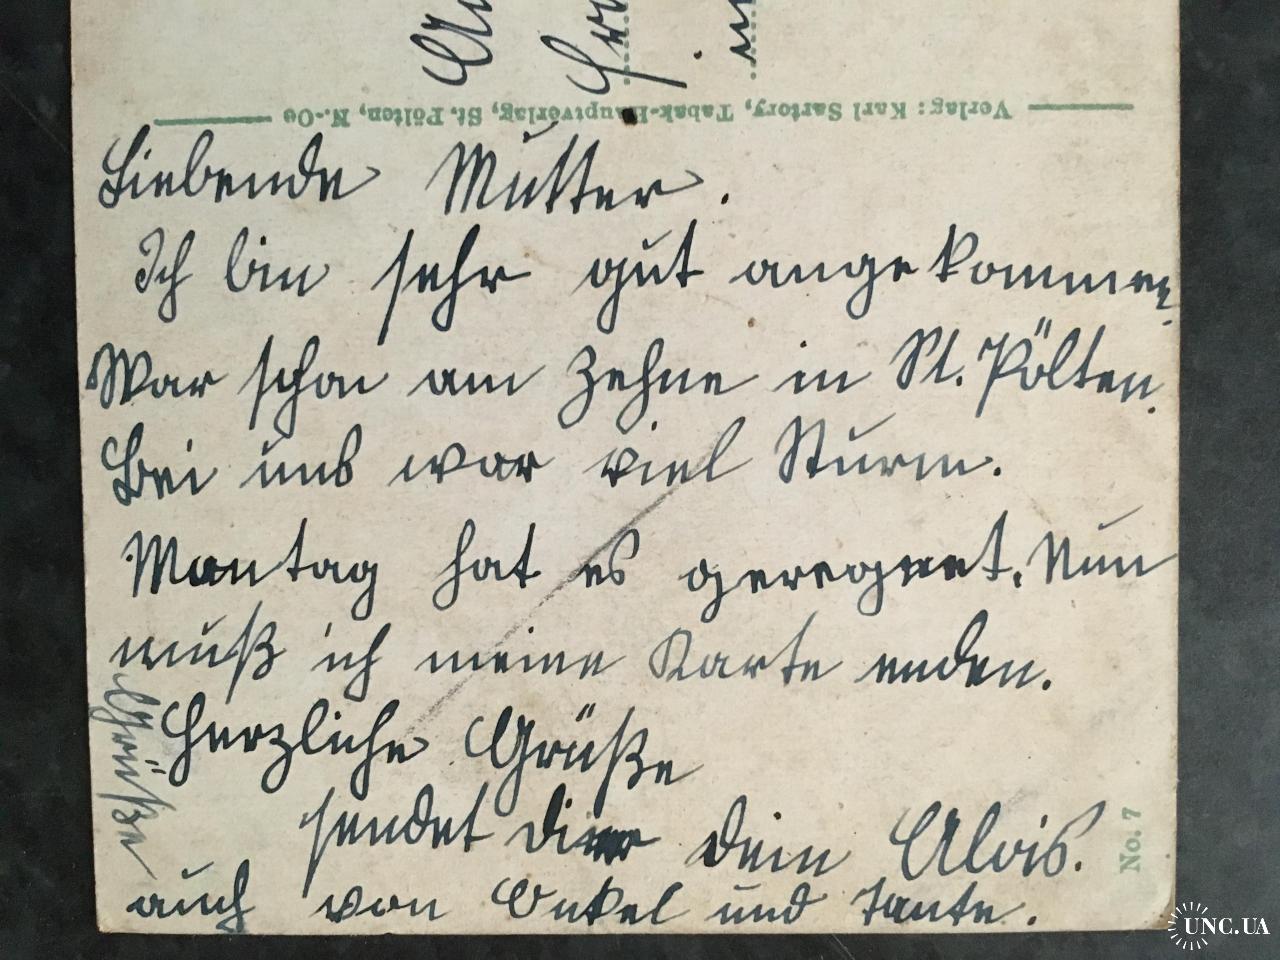 Verlag: Karl Sartory, Tabak-Hauptverlag, St. Pölten, N.-Oe
Liebende Mutter.
Ich bin sehr gut angekommen.
War schon am Zehne in St. Pölten.
Bei uns war viel Sturm.
Montag hat es geregnet. Nun
muß ich meine Karte enden.
Herzliche Grüße
sendet dir dein Alois.
Grüße
auch von Onkel und Tante.
No. 7
UNC.UA